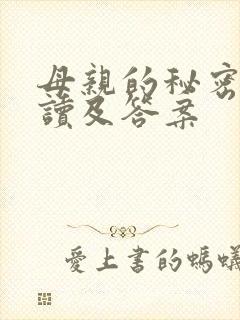 母親的秘密
讀及答案
愛上書的螞蟻